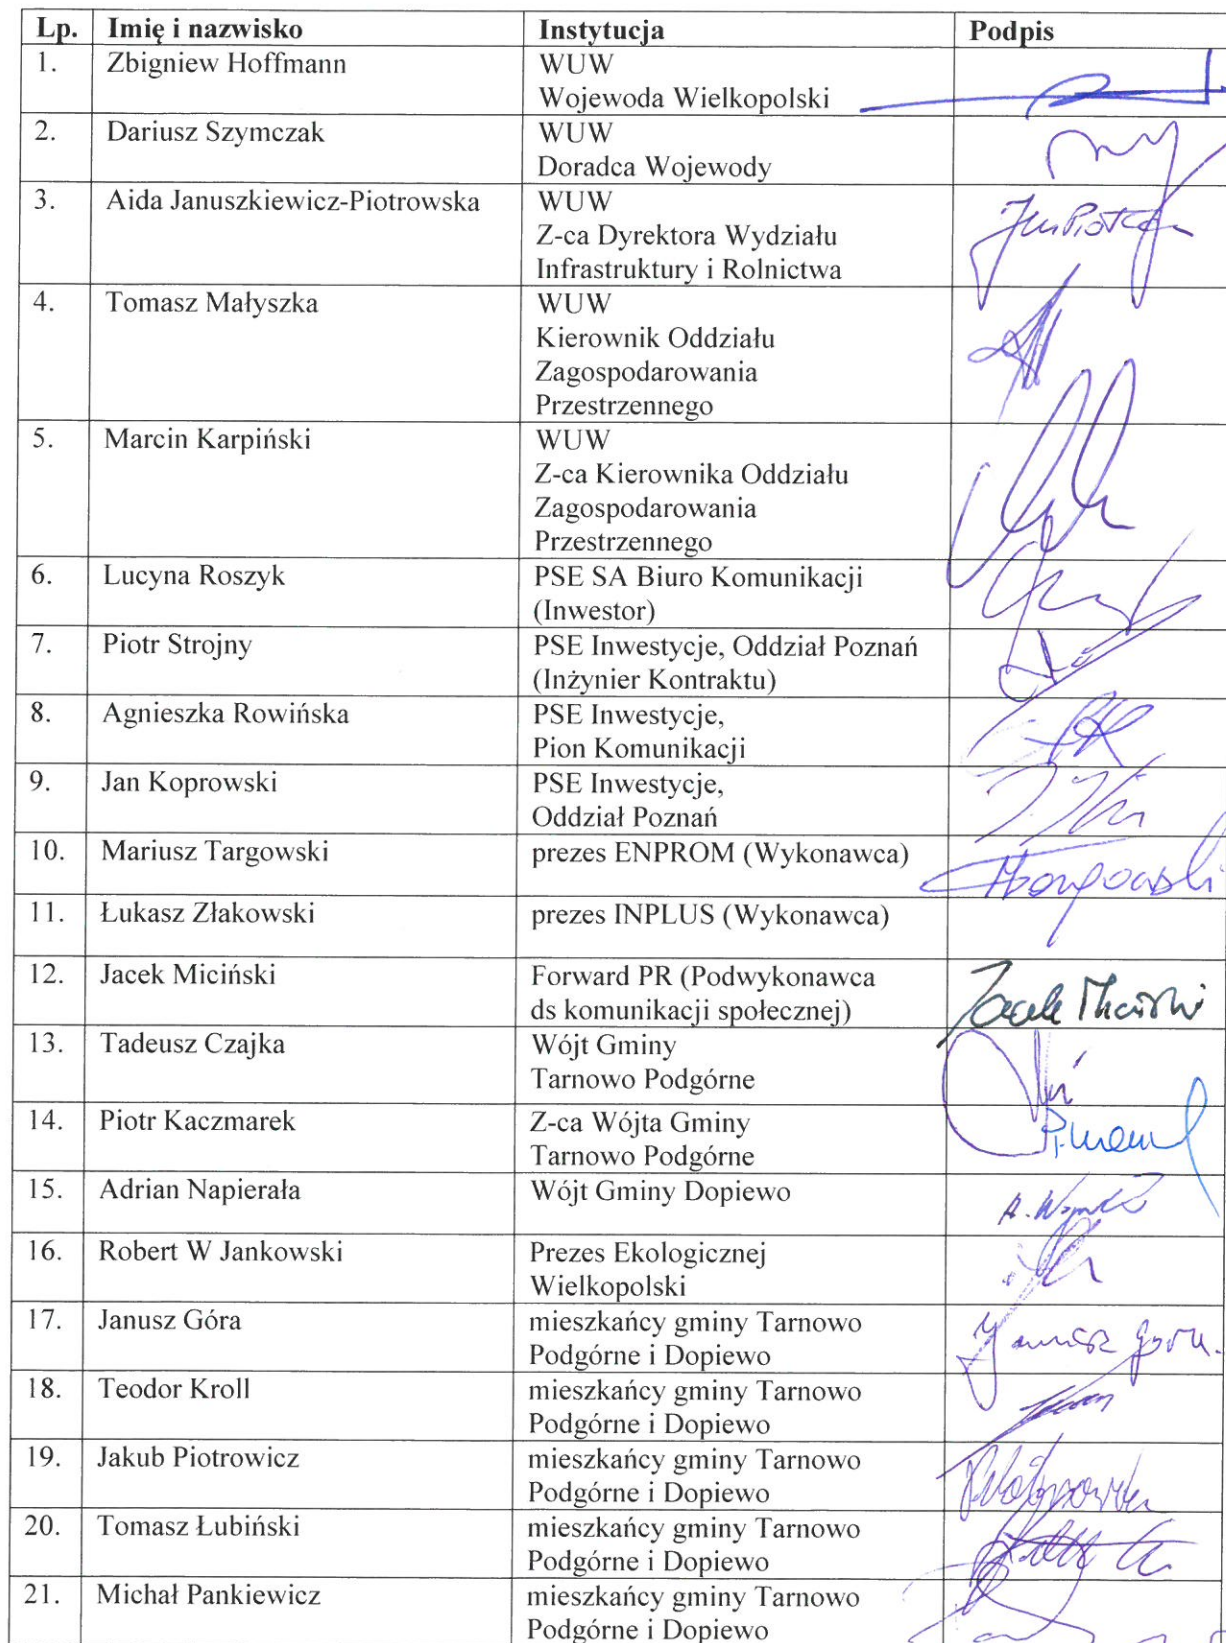 Lp. Imię i nazwisko Instytucja Podpis
1. Zbigniew Hoffmann WUW
Wojewoda Wielkopolski
2. Dariusz Szymczak WUW
Doradca Wojewody
3. Aida Januszkiewicz-Piotrowska WUW
Z-ca Dyrektora Wydziału
Infrastruktury i Rolnictwa
4. Tomasz Małyszka WUW
Kierownik Oddziału
Zagospodarowania
Przestrzennego
5. Marcin Karpiński WUW
Z-ca Kierownika Oddziału
Zagospodarowania
Przestrzennego
6. Lucyna Roszyk PSE SA Biuro Komunikacji
(Inwestor)
7. Piotr Strojny PSE Inwestycje, Oddział Poznań
(Inżynier Kontraktu)
8. Agnieszka Rowińska PSE Inwestycje,
Pion Komunikacji
9. Jan Koprowski PSE Inwestycje,
Oddział Poznań
10. Mariusz Targowski prezes ENPROM (Wykonawca)
11. Łukasz Złakowski prezes INPLUS (Wykonawca)
12. Jacek Miciński Forward PR (Podwykonawca
ds komunikacji społecznej) Jacek Miciński
13. Tadeusz Czajka Wójt Gminy
Tarnowo Podgórne
14. Piotr Kaczmarek Z-ca Wójta Gminy
Tarnowo Podgórne
15. Adrian Napierała Wójt Gminy Dopiewo
16. Robert W Jankowski Prezes Ekologicznej
Wielkopolski
17. Janusz Góra mieszkańcy gminy Tarnowo
Podgórne i Dopiewo Janusz Góra.
18. Teodor Kroll mieszkańcy gminy Tarnowo
Podgórne i Dopiewo
19. Jakub Piotrowicz mieszkańcy gminy Tarnowo
Podgórne i Dopiewo
20. Tomasz Łubiński mieszkańcy gminy Tarnowo
Podgórne i Dopiewo
21. Michał Pankiewicz mieszkańcy gminy Tarnowo
Podgórne i Dopiewo